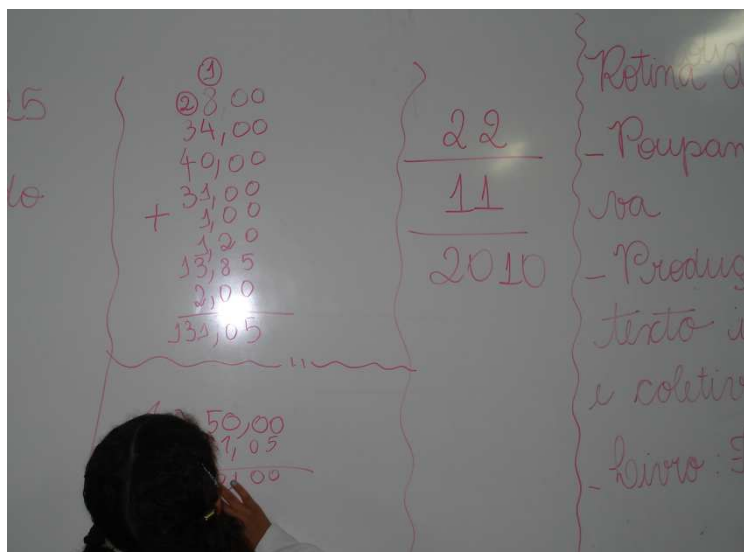 ①
② 8 00
34,00
40,00
31,00
+ 1,00
1,20
13,85
2,00
131,05
50,00
1,05
00
22
11
2010
Rotina d
- Poupan
va
- Produç
texto i
e coletiv
- Livro: